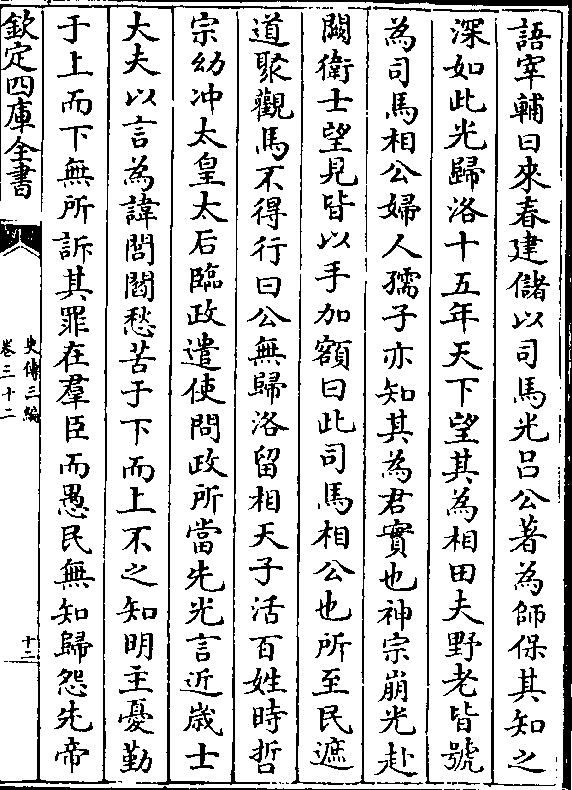 語宰輔曰來春建儲以司馬光吕公著為師保其知之
深如此光歸洛十五年天下望其為相田夫野老皆號
為司馬相公婦人孺子亦知其為君實也神宗崩光赴
闕衛士望見皆以手加額曰此司馬相公也所至民遮
道聚觀馬不得行曰公無歸洛留相天子活百姓時哲
宗幼冲太皇太后臨政遣使問政所當先光言近歲士
大夫以言為諱閭閻愁苦于下而上不之知明主憂勤
于上而下無所訴其罪在羣臣而愚民無知歸怨先帝
欽定四庫全書
史傳三編
卷三十二
十二